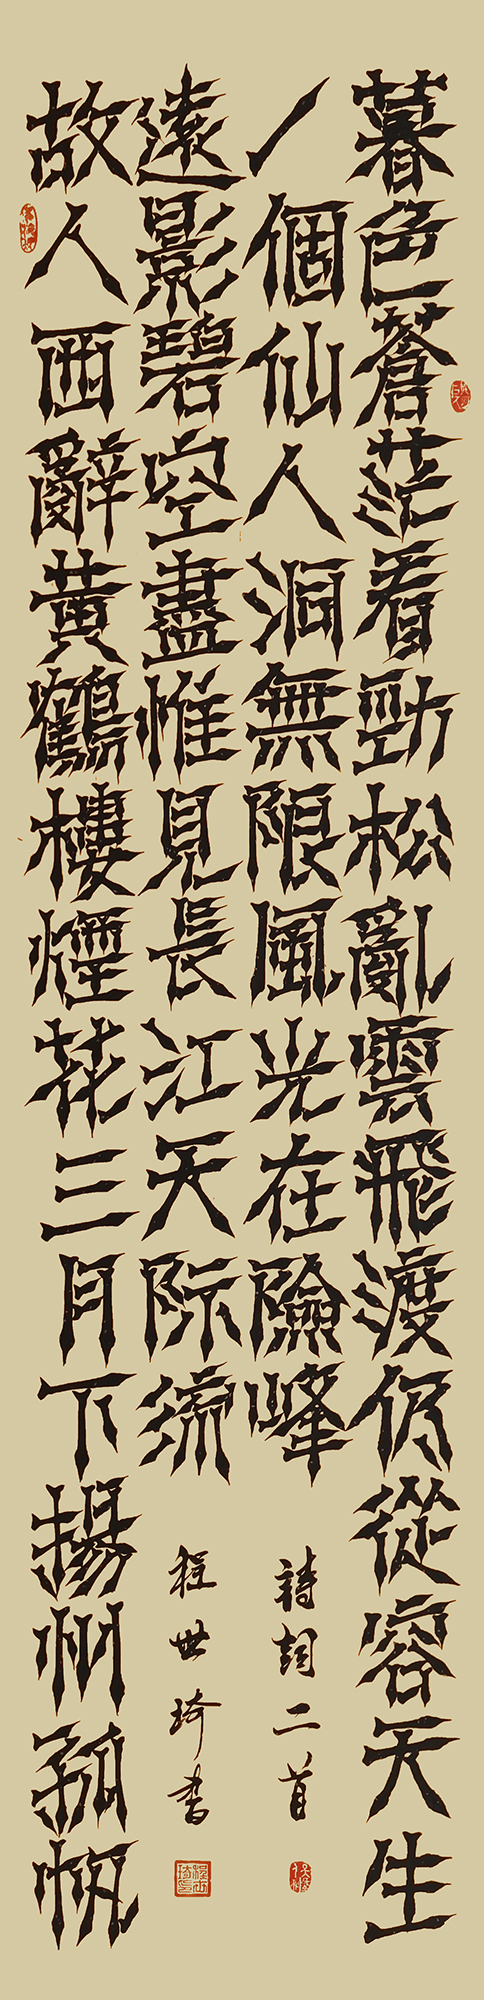 暮色蒼茫看勁松亂雲飛渡仍從容天生
一個仙人洞無限風光在險峰
故人西辭黄鶴樓煙花三月下揚州孤帆
遠影碧空盡惟見長江天际流
詩詞二首
程世琦書
程世琦印